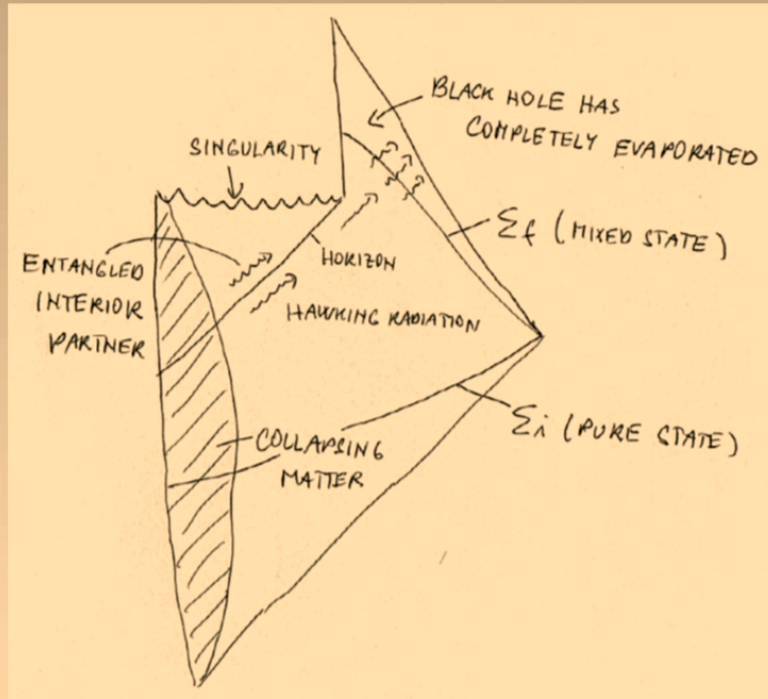 BLACK HOLE HAS
COMPLETELY EVAPORATED
SINGULARITY
Σf (MIXED STATE)
ENTANGLED
INTERIOR
PARTNER
HORIZON
HAWKING RADIATION
Σi (PURE STATE)
COLLAPSING
MATTER